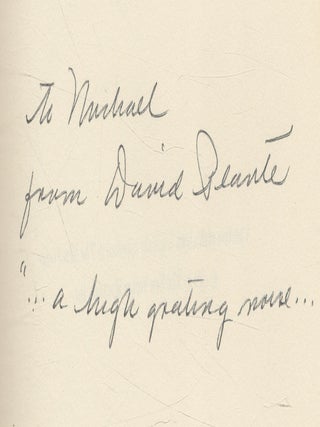 to Michael
from David Plante
"... a high grating noise...